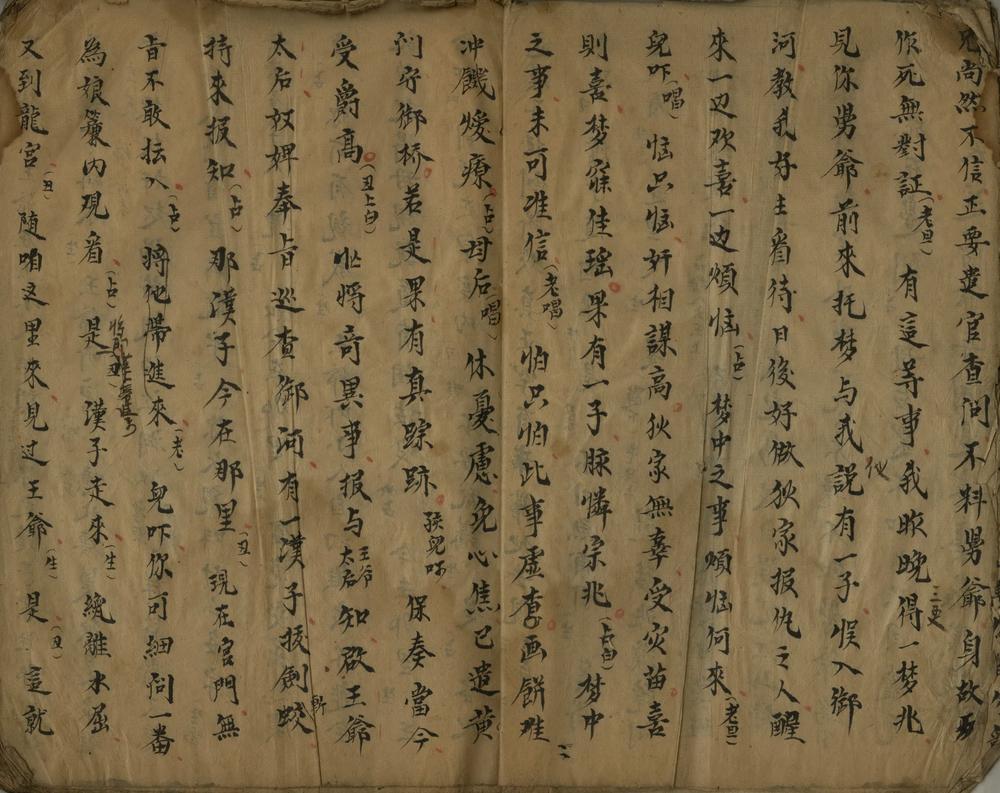 兄尚然不信正要遣官查问不料舅爺身故
作死無對証(老旦)有這等事我昨晚三更得一梦兆
見你舅爺前來托梦与我説他有一子悮入御
河教我好主看待日後好做狄家报仇之人醒
來一边欢喜一边煩恼(占)梦中之事煩恼何來(老旦)
兒吓(唱)恼只恼奸相謀高狄家無辜受灾苗喜
則喜梦寐佳瑶果有一子脉憐宗兆(占白)梦中
之事未可准信(老唱)怕只怕此事虚杳画餅难
冲饑煖療(占)母后(唱)休憂慮免心焦已遣黄
门守御桥若是果有真踪跡孩兒吓保奏當今
受爵高(丑上白)忙將奇異事报与王爷太后知啟王爺
太后奴婢奉旨巡查御河有一漢子揿劍斬蛟
持來报知(占)那漢子今在那里(丑)現在宫門無
旨不敢抎入(占)將他帶進來(老)兒吓你可細问一番
為娘簾内現看(占)是漢子走來(生)纔離水屈
又到龍宫(丑)随咱这里來見过王爺(生)是(丑)這就